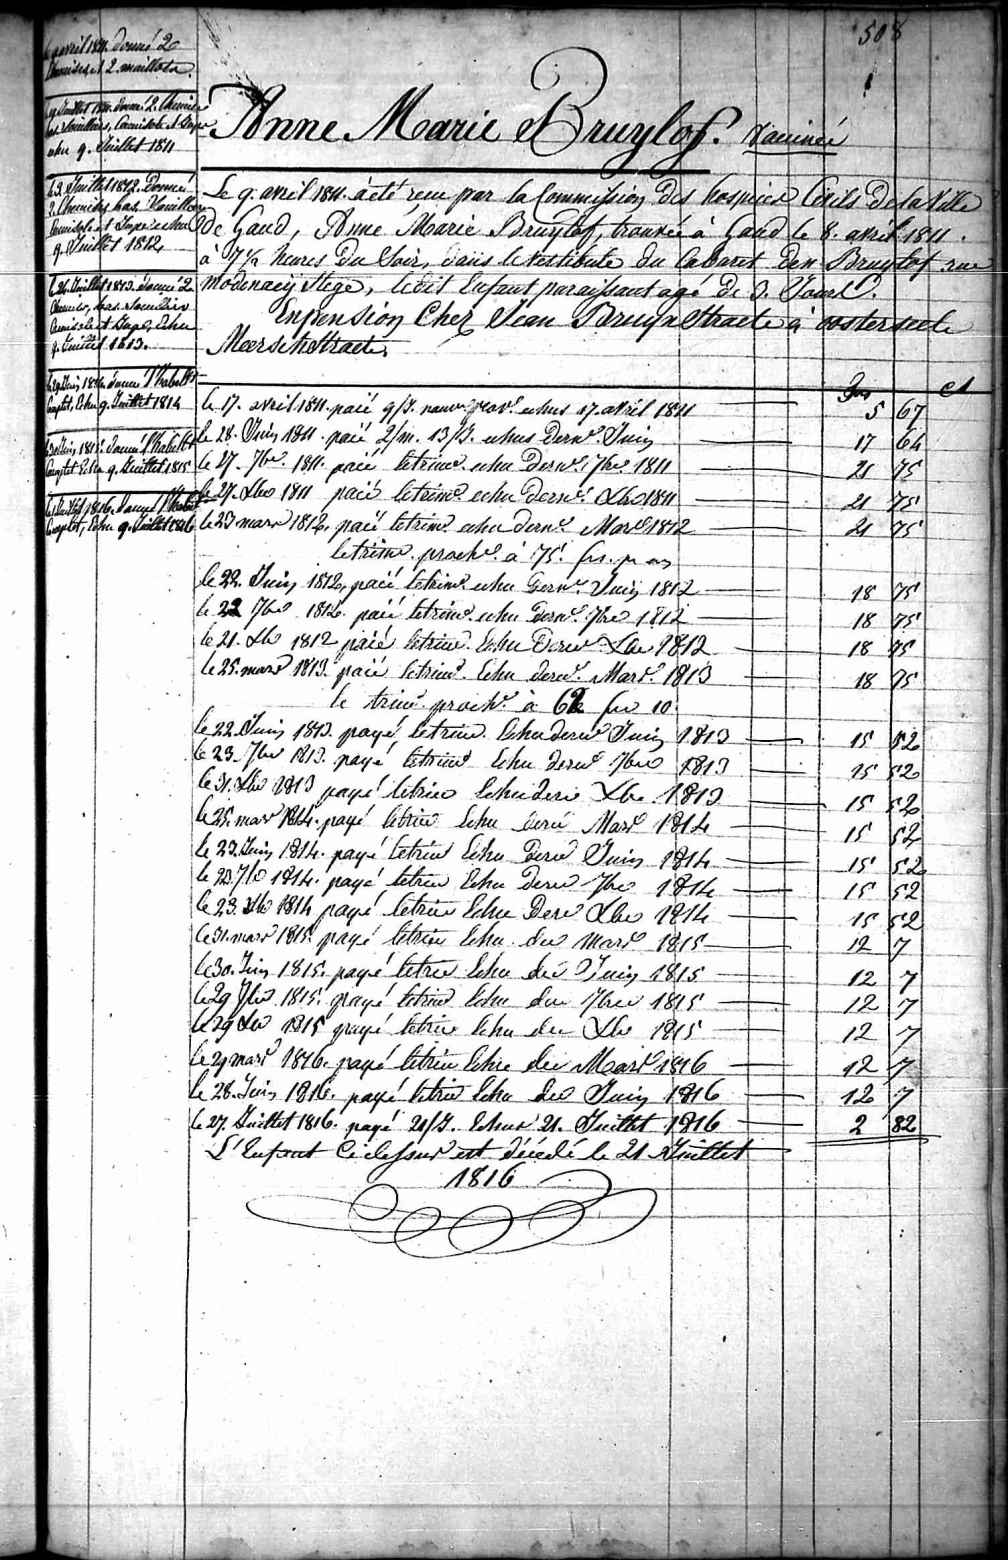 508
Anne Marie Bruylof. Vaccinée
avril 1811. donné 2
Chemises et 2 maillots.
Juillet 1811. donné 2. Chemises
bas, Souillers, Camisole et Jupe
echu 9. Juillet 1811
Juillet 1812. Donné
2. Chemises bas. Souillers
Camisole et Jupe echu
9. Juillet 1812.
le 26. Juillet 1813. donné 2
Chemises, bas. Souillers
Camisole et Jupe, Echu
9. Juillet 1813.
le 29 Juin 1814. donné 1 habill.t
Complet, Echu 9. Juillet 1814
Juin 1815. donné 1 habill.t
Complet Echu 9. Juillet 1815
Juillet 1816. donné 1 habill.t
Complet, Echu 9. Juillet 1816
Le 9. avril 1811. a été reçu par la Commission des hospices Civils de la Ville
de Gand, Anne Marie Bruylof, trouvée à Gand le 8. avril 1811.
à 7 1/2 heures du Soir, dans le vestibule du Cabaret den Bruylof rue
ledit Enfant paraissant agé de 3. Jours.
En pension Chez Jean Bruynstraete à oosterseele
Meersche Straete.
frs ct
le 17. avril 1811. paié 9/J. nouv. echus 17. avril 1811 5 67
le 28. Juin 1811. paié 2/m. 13/J. echus dern.r Juin 17 64
le 27. 7bre. 1811. paié le trim.e echu dern.r 7bre 1811 21 75
le 27. Xbre 1811 paié le trim.e echu dern.r Xbre 1811 21 75
le 23 mars 1812. paié le trim.e echu dern.r Mars 1812 21 75
le trim.e proch.n à 75. frs. pr an
le 22. Juin 1812, paié le trim.e echu dern.r Juin 1812 18 75
le 22 7bre 1812. paié le trim.e echu dern.r 7bre 1812 18 75
le 21. Xbre 1812 paié le trim.e Echu dern.r Xbre 1812 18 75
le 25. mars 1813. paié le trim.e Echu dern.r Mars 1813 18 75
le trim.e proch.n à 62 frs 10.
le 22. Juin 1813. payé le trim.e Echu dern.r Juin 1813 15 52
le 23. 7bre 1813. payé le trim.e Echu dern.r 7bre 1813 15 52
le 31. Xbre 1813 payé le trim.e Echu dern.r Xbre 1813 15 52
le 25. mars 1814. payé le trim.e Echu dern.r Mars 1814 15 52
le 23. Juin 1814. payé le trim.e Echu dern.r Juin 1814 15 52
le 23 7bre 1814. payé le trim.e Echu dern.r 7bre 1814 15 52
le 23. Xbre 1814 payé le trim.e Echu Dern.r Xbre 1814 15 52
le 31. mars 1815. payé le trim.e Echu der mars 1815 12 7
le 30. Juin 1815. payé le trim.e Echu der Juin 1815 12 7
le 29 7bre 1815. payé le trim.e Echu der 7bre 1815 12 7
le 29 Xbre 1815 payé le trim.e Echu der Xbre 1815 12 7
le 29 mars 1816. payé le trim.e Echu der Mars 1816 12 7
le 28. Juin 1816. payé le trim.e Echu der Juin 1816 12 7
le 27. Juillet 1816. payé 21/J. Echus 21. Juillet 1816 2 82
L'Enfant Ci dessus est décedé le 21 Juillet
1816